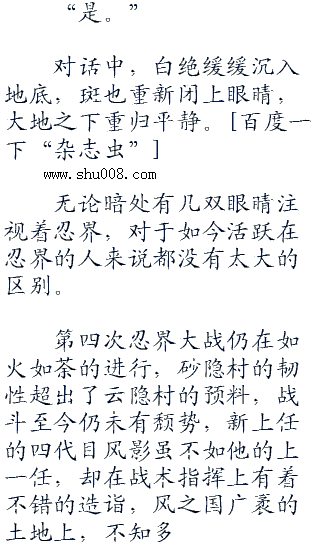 “是。”
对话中，白绝缓缓沉入
地底，斑也重新闭上眼睛，
大地之下重归平静。[百度一
下“杂志虫”]
www.shu008.com
无论暗处有几双眼睛注
视着忍界，对于如今活跃在
忍界的人来说都没有太大的
区别。
第四次忍界大战仍在如
火如荼的进行，砂隐村的韧
性超出了云隐村的预料，战
斗至今仍未有颓势，新上任
的四代目风影虽不如他的上
一任，却在战术指挥上有着
不错的造诣，风之国广袤的
土地上，不知多